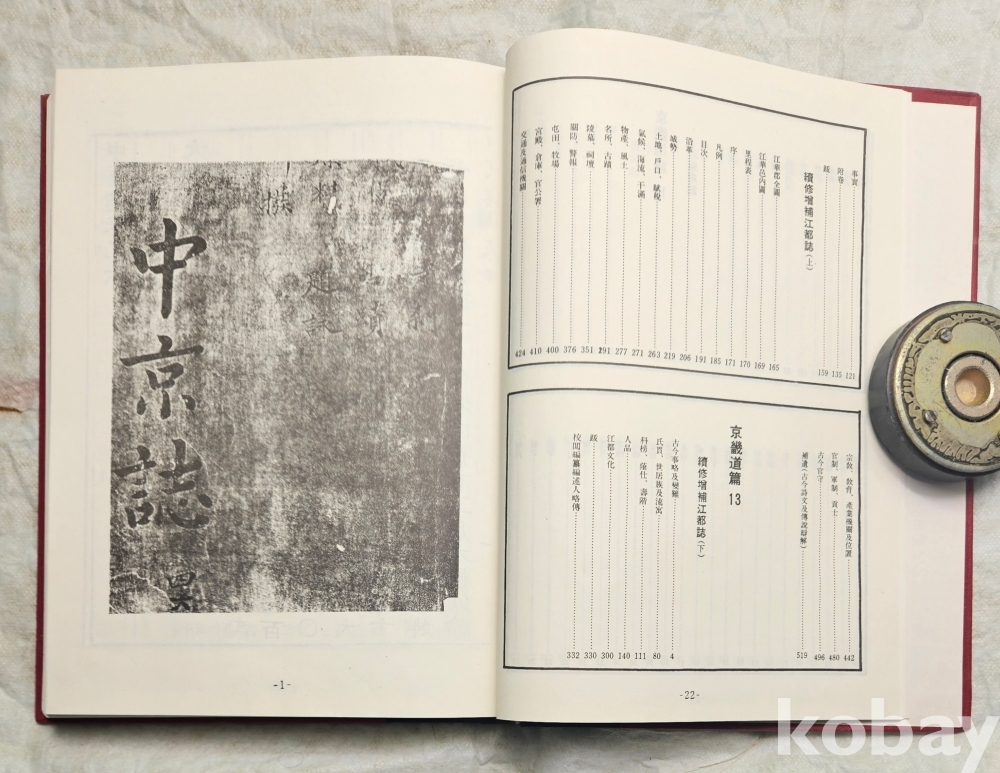 事實 121
附卷 135
跋 159
續修增補江都誌(上)
江華郡全圖 165
江華邑內圖 169
里程表 170
序 171
凡例 185
目次 191
沿革 206
域勢 219
土地、戶口、賦稅 263
氣候、海流、干滿 271
物產、風土 277
名所、古蹟 291
陵墓、祠壇 351
關防、警報 376
屯田、牧場 400
宮殿、倉庫、官公署 410
交通及通信機關 424
宗敎、敎育、產業機關及位置 442
官制、軍制、貢士 480
古今官守 496
補遺(古今詩文及傳說辯解) 519
京畿道篇 13
續修增補江都誌(下)
古今事略及變難 4
氏貫、世居族及流寓 80
科榜、蔭仕、壽階 111
人品 140
江都文化 300
跋 330
校閱編纂編述人略傳 332
-22-
中京誌
-1-
kobay